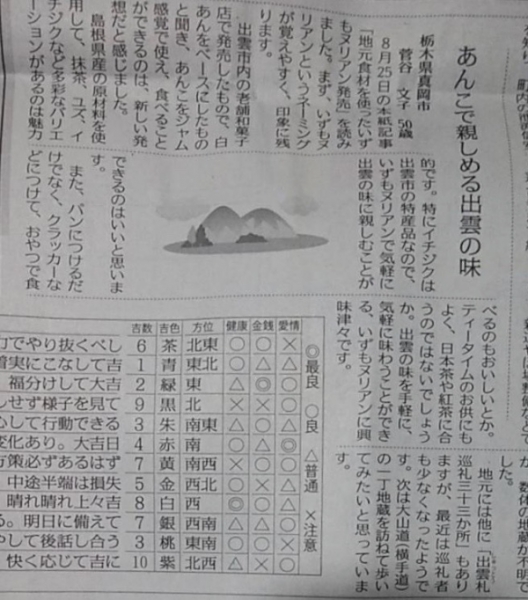 あんこで親しめる出雲の味
栃木県真岡市
菅谷 文子 50歳
8月25日の本紙記事
「地元食材を使ったいず
もヌリアン発売」を読み
ました。まず、いずもヌ
リアンというネーミング
が覚えやすく、印象に残
ります。
出雲市内の老舗和菓子
店で発売したもので、白
あんをベースにしたもの
と聞き、あんこをジャム
感覚で使え、食べること
ができるのは、新しい発
想だと感じました。
島根県産の原材料を使
用して、抹茶、ユズ、イ
チジクなど多彩なバリエ
ーションがあるのは魅力
的です。特にイチジクは
出雲市の特産品なので、
いずもヌリアンで気軽に
出雲の味に親しむことが
できるのはいいと思いま
す。
また、パンにつけるだ
けでなく、クラッカーな
どにつけて、おやつで食
べるのもおいしいとか。
ティータイムのお供にも
よく、日本茶や紅茶に合
うのではないでしょう
か。出雲の味を手軽に、
気軽に味わうことができ
る、いずもヌリアンに興
味津々です。
が、数基の地蔵が不明で
した。
地元には他に「出雲札
巡礼三十三か所」もあり
ますが、最近は巡礼者
も少なくなったようで
す。次は大山道(横手道)
の一丁地蔵を訪ねて歩い
てみたいと思っていま
す。
吉数 吉色 方位 健康 金銭 愛情
力でやり抜くべし 6 茶 北東 ○ ○ ×
着実にこなして吉 1 青 東北 △ △ ○
福分けして大吉 2 緑 東 △ ◎ ○
せず様子を見て 9 黒 北 × × ○
して行動できる 3 朱 南東 △ ○ △
変化あり。大吉日 4 赤 南 ○ △ ◎
方策必ずあるはず 7 黄 南西 × ○ ○
中途半端は損失 5 金 西北 ○ × △
晴れ晴れ上々吉 8 白 西 ◎ ○ ○
る。明日に備えて 7 銀 西南 △ △ ○
やして後話し合う 3 桃 東南 ○ ○ ×
快く応じて吉に 10 紫 北西 △ × ○
◎最良 ○良 △普通 ×注意